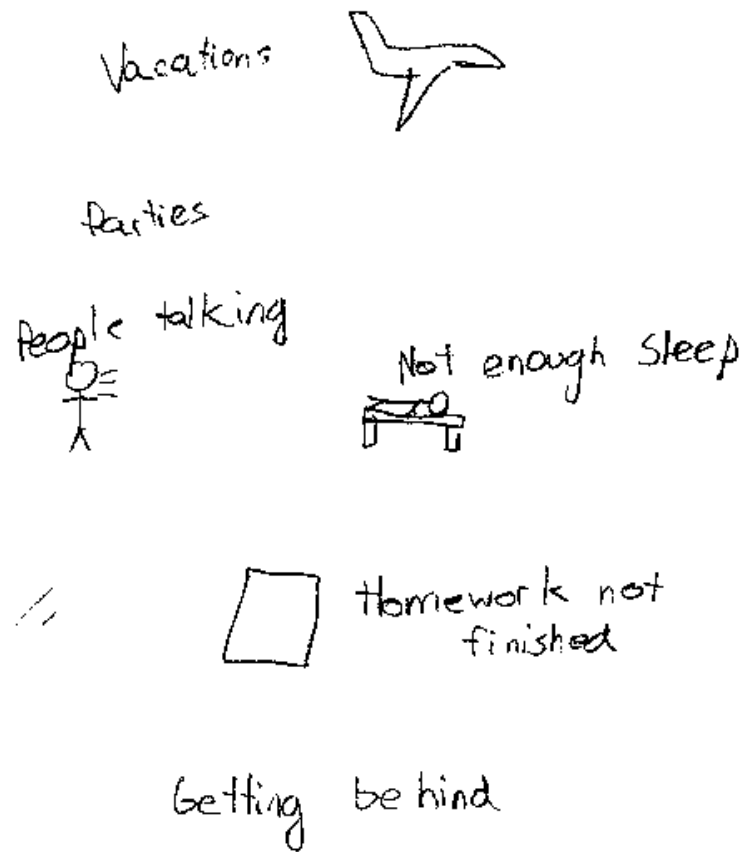 Vacations
Parties
People talking
Not enough Sleep
Homework not
finished
Getting behind